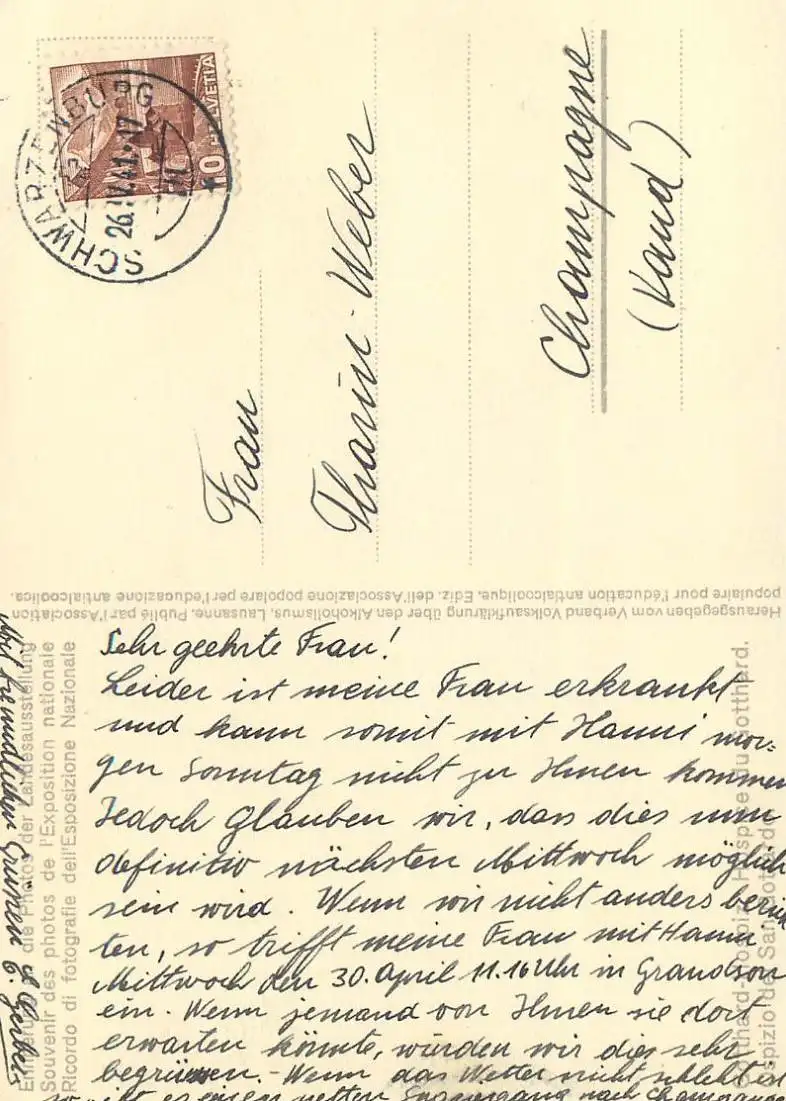 SCHWARZENBURG
26.IV.41.-17
HELVETIA
10
Frau
Tharin-Weber
Champagne
(Vaud)
Herausgegeben vom Verband Volksaufklärung über den Alkoholismus, Lausanne. Publié par l'Association
populaire pour l'éducation antialcoolique. Ediz. dell'Associazione popolare per l'educazione antialcoolica.
Sehr geehrte Frau!
Leider ist meine Frau erkrankt
und kann somit mit Hanni mor-
gen Sonntag nicht zu Ihnen kommen
Jedoch glauben wir, dass dies nun
definitiv nächsten Mittwoch möglich
sein wird. Wenn wir nicht anders berich
ten, so trifft meine Frau mit Hanni
Mittwoch den 30. April 11.16 Uhr in Grandson
ein. Wenn jemand von Ihnen sie dort
erwarten könnte, würden wir dies sehr
begrüssen. - Wenn das Wetter nicht schlecht ist
so gibt es einen netten Spaziergang nach Champagne
Mit freundlichen Grüssen
Gerber
Erinnerung an die Photos der Landesausstellung
Souvenir des photos de l'Exposition nationale
Ricordo di fotografie dell'Esposizione Nazionale
Gotthard-Hospiz. Hospice du Gotthard.
Ospizio del San Gottardo.